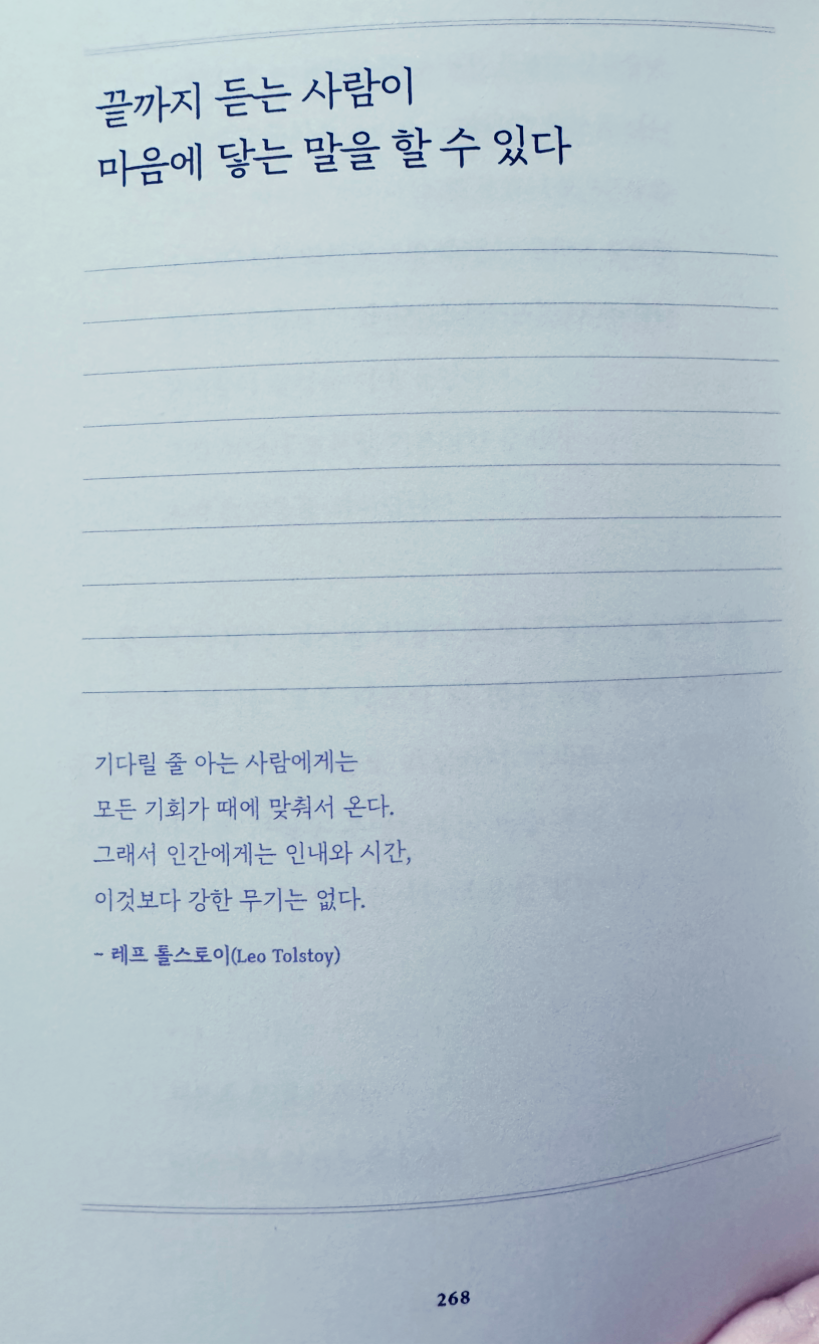 끝까지 듣는 사람이
마음에 닿는 말을 할 수 있다
기다릴 줄 아는 사람에게는
모든 기회가 때에 맞춰서 온다.
그래서 인간에게는 인내와 시간,
이것보다 강한 무기는 없다.
~ 레프 톨스토이(Leo Tolstoy)
268